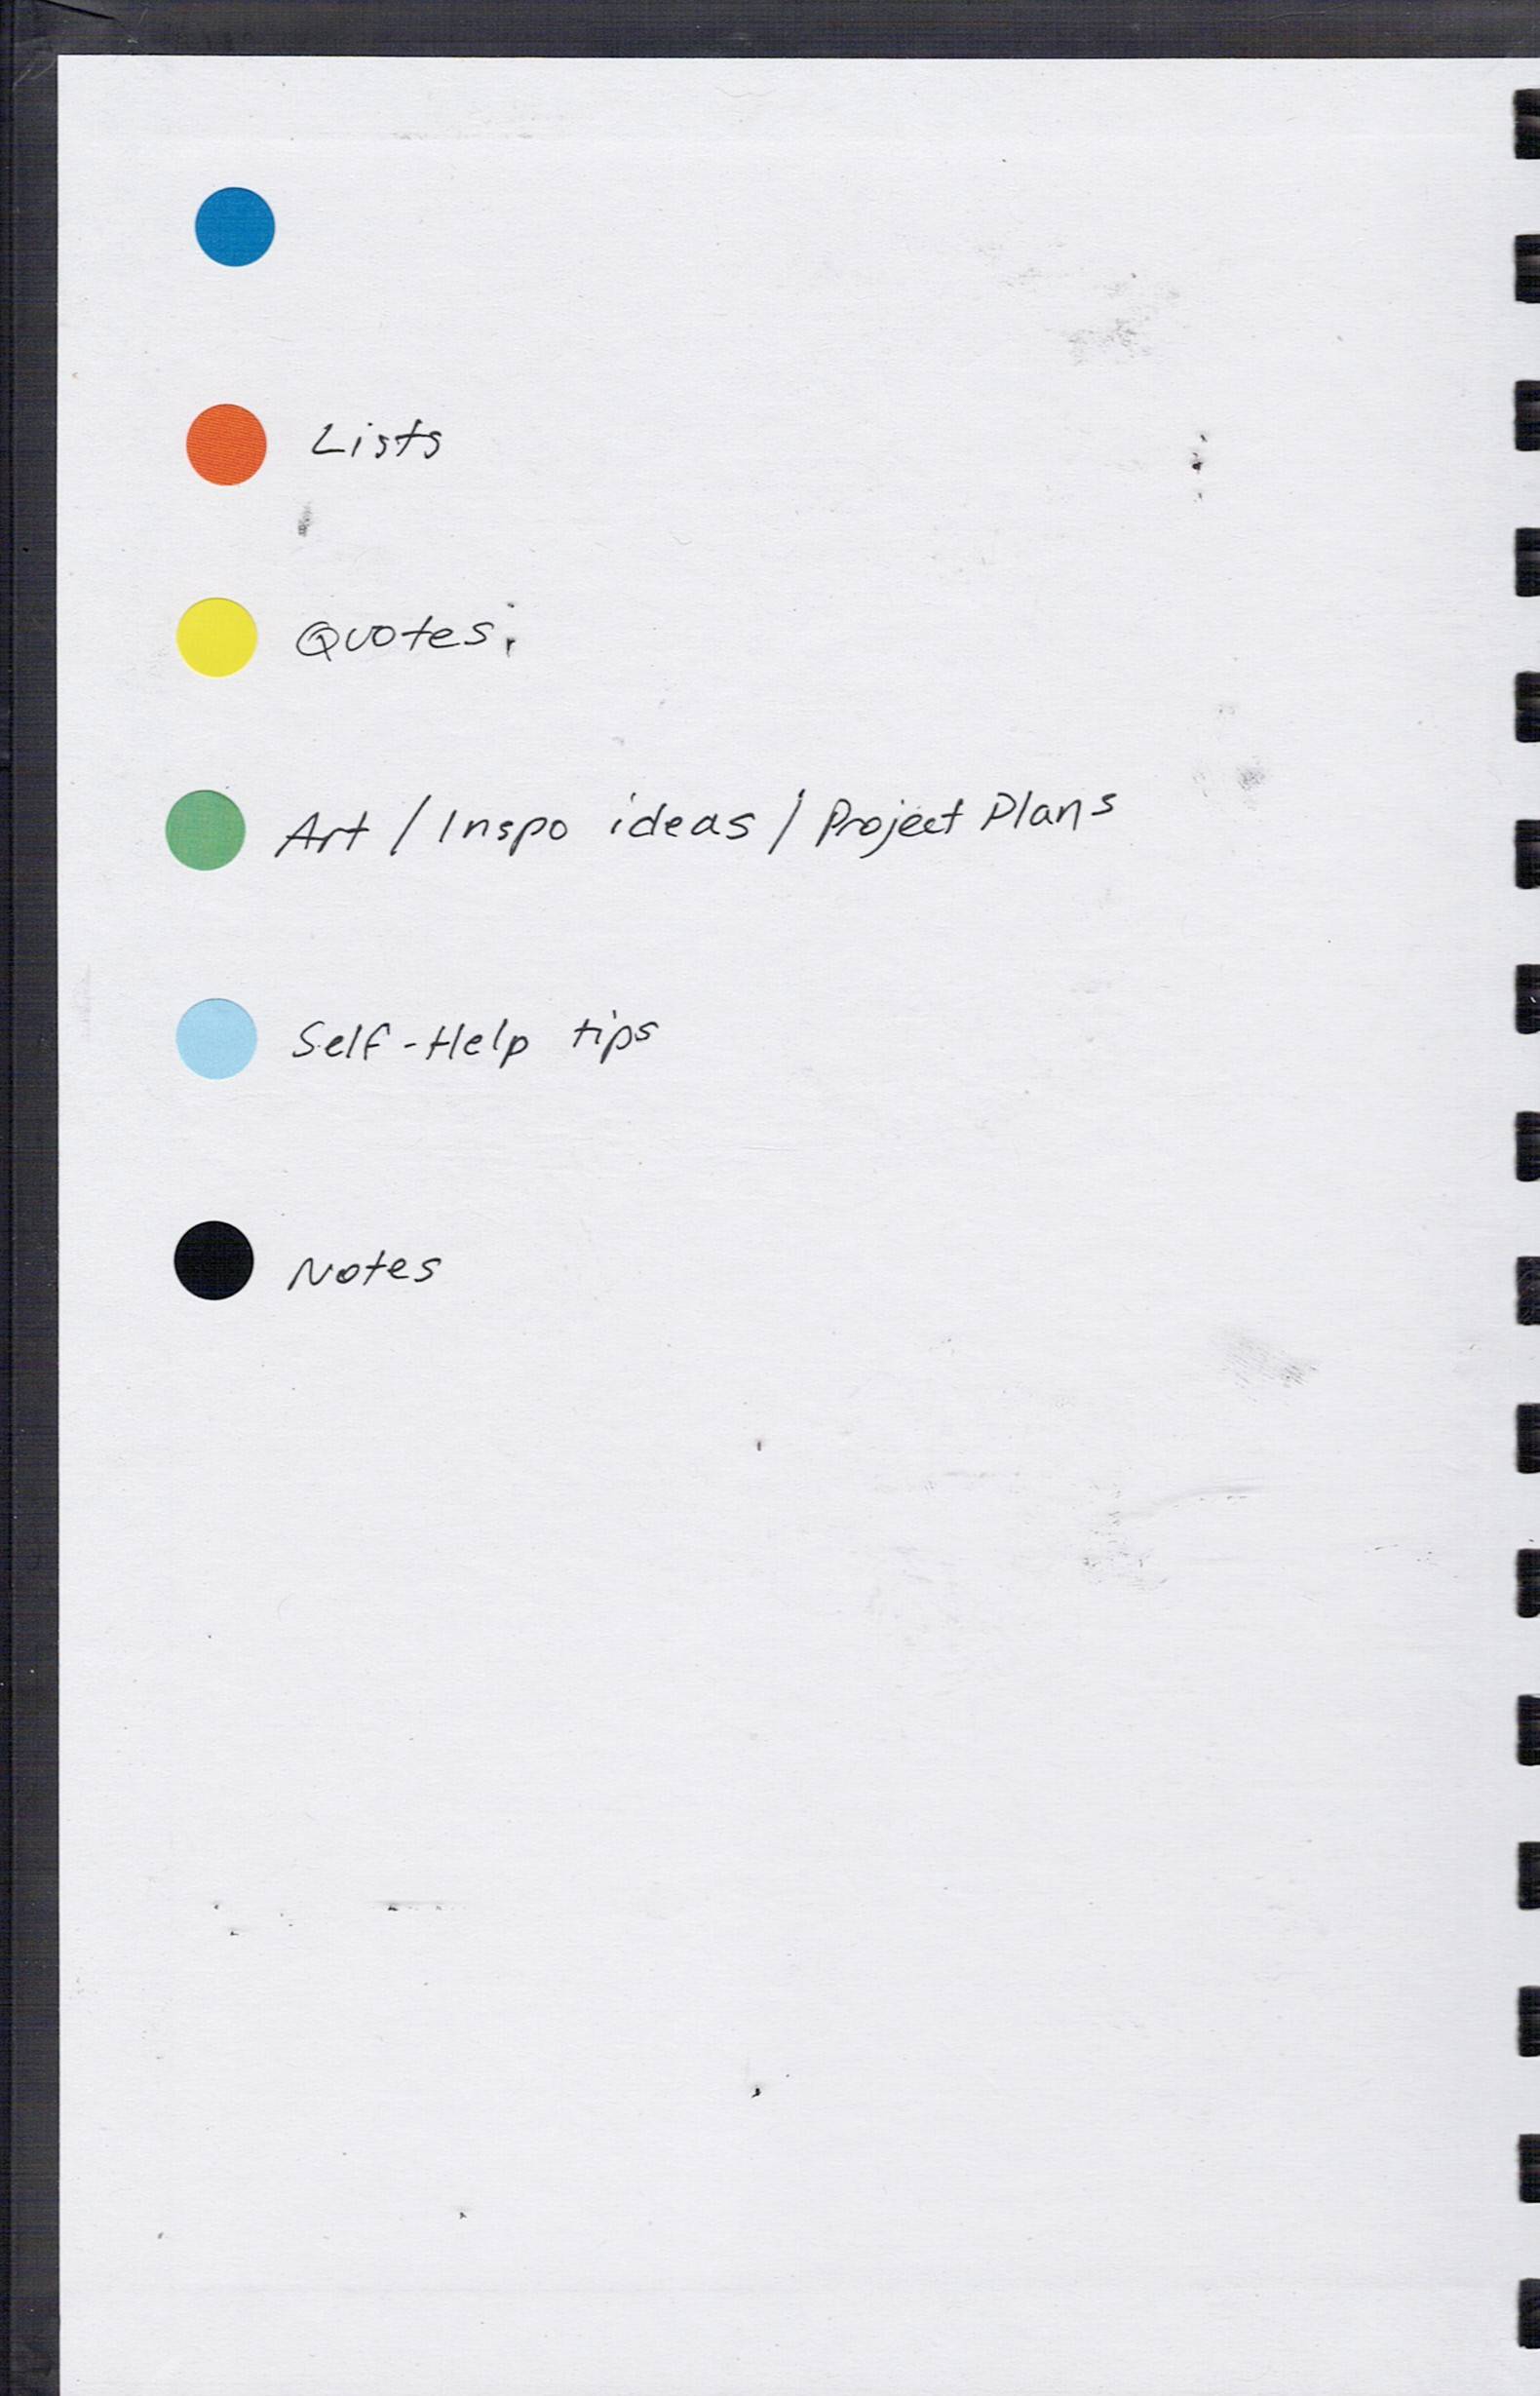 Lists
Quotes
Art / Inspo ideas / Project Plans
Self-Help tips
Notes